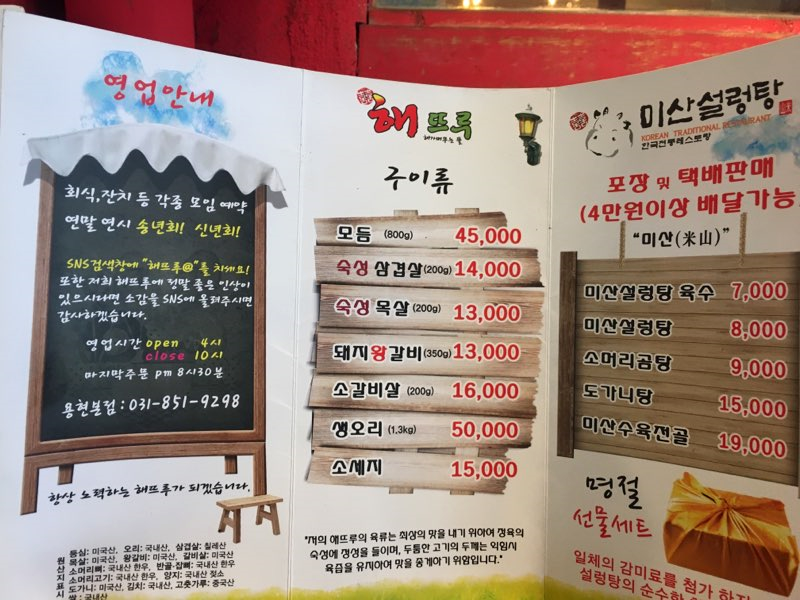 영업안내
회식,잔치 등 각종 모임 예약
연말 연시 송년회! 신년회!
SNS검색창에 "해뜨루@"를 치세요!
또한 저희 해뜨루에 정말 좋은 인상이
있으시다면 소감을 SNS에 올려주시면
감사하겠습니다.
영업시간 open 4시
close 10시
마지막주문 pm 8시30분
용현본점 : 031-851-9298
항상 노력하는 해뜨루가 되겠습니다.
원산지표시
등심: 미국산, 오리: 국내산, 삼겹살: 칠레산
목살: 미국산, 왕갈비: 미국산, 갈비살: 미국산
소머리뼈: 국내산 한우, 반골·잡뼈: 국내산 한우
소머리고기: 국내산 한우, 양지: 국내산 젖소
도가니: 미국산, 김치: 국내산, 고춧가루: 중국산
쌀 : 국내산
해뜨루
구이류
모듬 (800g) 45,000
숙성 삼겹살(200g) 14,000
숙성 목살 (200g) 13,000
돼지왕갈비(350g) 13,000
소갈비살 (200g) 16,000
생오리 (1,3kg) 50,000
소세지 15,000
"저희 해뜨루의 육류는 최상의 맛을 내기 위하여 정육의
숙성에 정성을 들이며, 두툼한 고기의 두께는 익힘시
육즙을 유지하여 맛을 중계하기 위함입니다."
미산설렁탕
KOREAN TRADITIONAL RESTAURANT
한국전통레스토랑
포장 및 택배판매
(4만원이상 배달가능
"미산(米山)"
미산설렁탕 육수 7,000
미산설렁탕 8,000
소머리곰탕 9,000
도가니탕 15,000
미산수육전골 19,000
명절
선물세트
일체의 감미료를 첨가 하지
설렁탕의 순수한